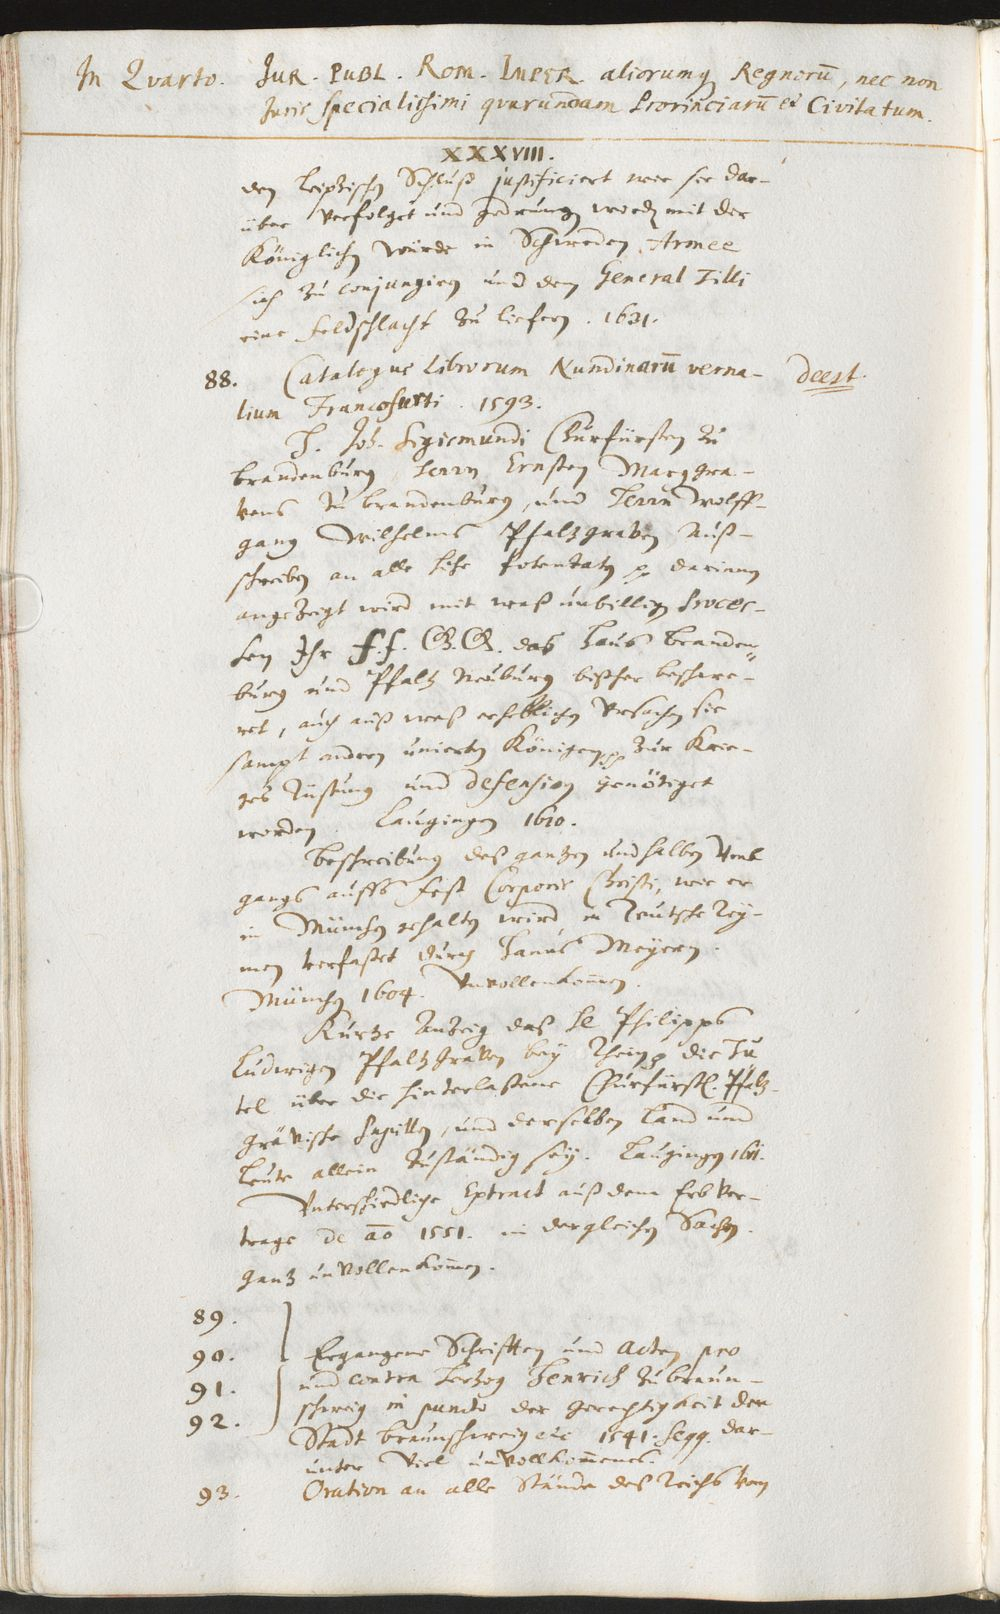 In Quarto. JUR. PUBL. ROM. IMPER. aliorumq Regnorū, nec non
Juris specialissimi qvarundam Provinciarū et Civitatum.
XXXVIII.
den Leipzischen Schluß justificiert wer sie dar-
über verfolget und gedrungen worden mit der
Königlichen Würde in Schweden Armee
sich zu conjungiren und dem General Tilli
eine Feldschlacht zu liefern. 1631.
88. Catalogus Librorum Nundinarū verna- deest.
lium Francofurti. 1593.
H. Joh. Sigismundi Churfürsten zu
Brandenburg, Herrn Ernsten Marggra-
vens zu Brandenburg, und Herrn Wolff-
gang Wilhelms Pfaltzgraven Auß-
schreiben an alle Potentaten darinnen
angezeigt wird mit was unbillichen Proces-
sen Ihr F.F. G.G. das Haus Branden-
burg und Pfaltz Neuburg bißher beschwe-
ret, auch auß was erheblichen Ursachen sie
sampt andern unierten Königen zur Krie-
ges Rüstung und defension genötiget
worden. Laugingen 1610.
Beschreibung deß gantzen und halben Umb
gangs auffs Fest Corporis Christi, wie er
in München gehalten wird in Teutsche Rey-
men verfasset durch Hanns Meyern.
München 1604. Unvollenkommen.
Kurtze Anzeig daß H. Philipps
Ludwigen Pfaltzgraven bey Rhein die Tu
tel über die hinterlassene Churfürstl. Pfaltz-
grävische Pupillen, und derselben Land und
Leute allein zuständig sey. Laugingen 1611.
Unterschiedliche Extract auß dem Erb Ver-
trage de aō 1551. in dergleichen Sachen.
gantz unvollenkommen.
89.
90. Ergangene Schrifften und Acten pro
91. und contra Hertzog Henrich zu Braun-
92. schweig in puncto der Gerechtigkeit der
Stadt Braunschweig etc 1541. seqq. dar-
unter viel unvollkommenes.
93. Oration an alle Stände deß Reichs vom